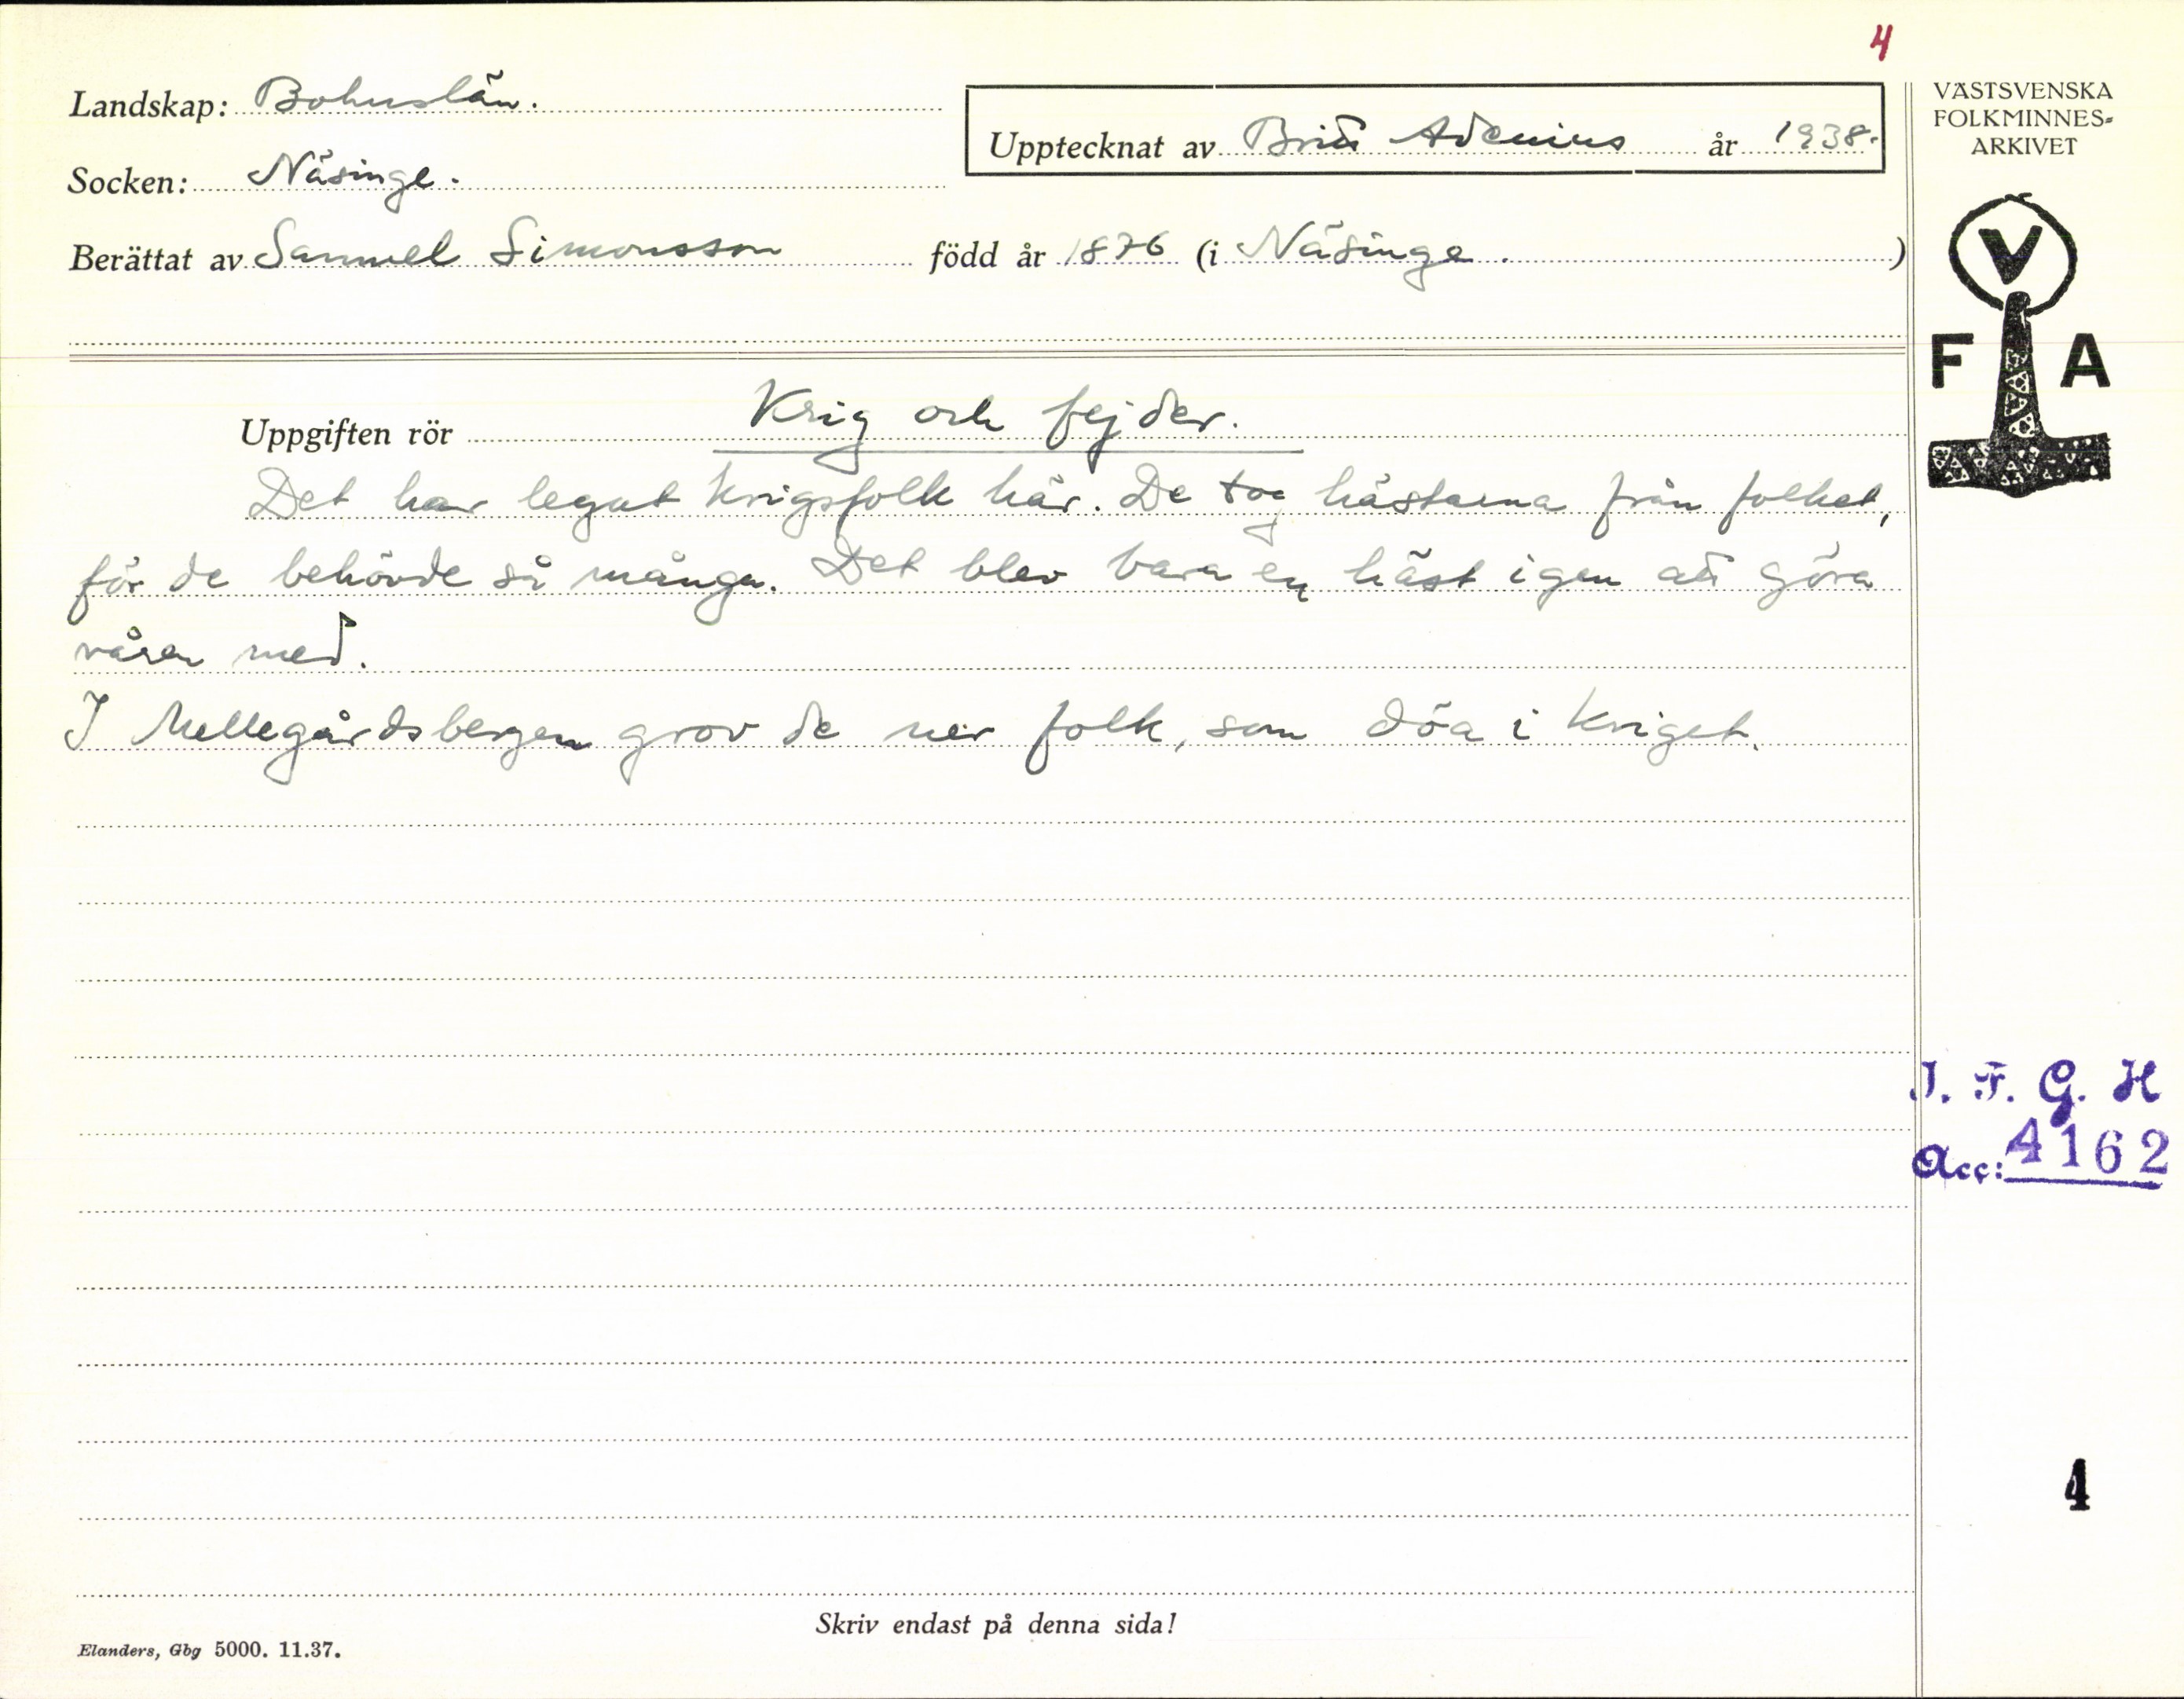 4
Landskap: Bohuslän.
Upptecknat av Britt Adenius år 1938.
Socken: Näsinge.
Berättat av Samuel Simonsson född år 1876 (i Näsinge. )
VÄSTSVENSKA
FOLKMINNES=
ARKIVET
V
F A
Uppgiften rör Krig och fejder.
Det har legat krigsfolk här. De tog hästarna från folket,
för de behövde så många. Det blev bara en häst igen att göra
våren med.
I Mellegårdsbergen grov de ner folk, som döa i kriget.
I. F. G. H
Acc: 4162
4
Skriv endast på denna sida!
Elanders, Gbg 5000. 11.37.